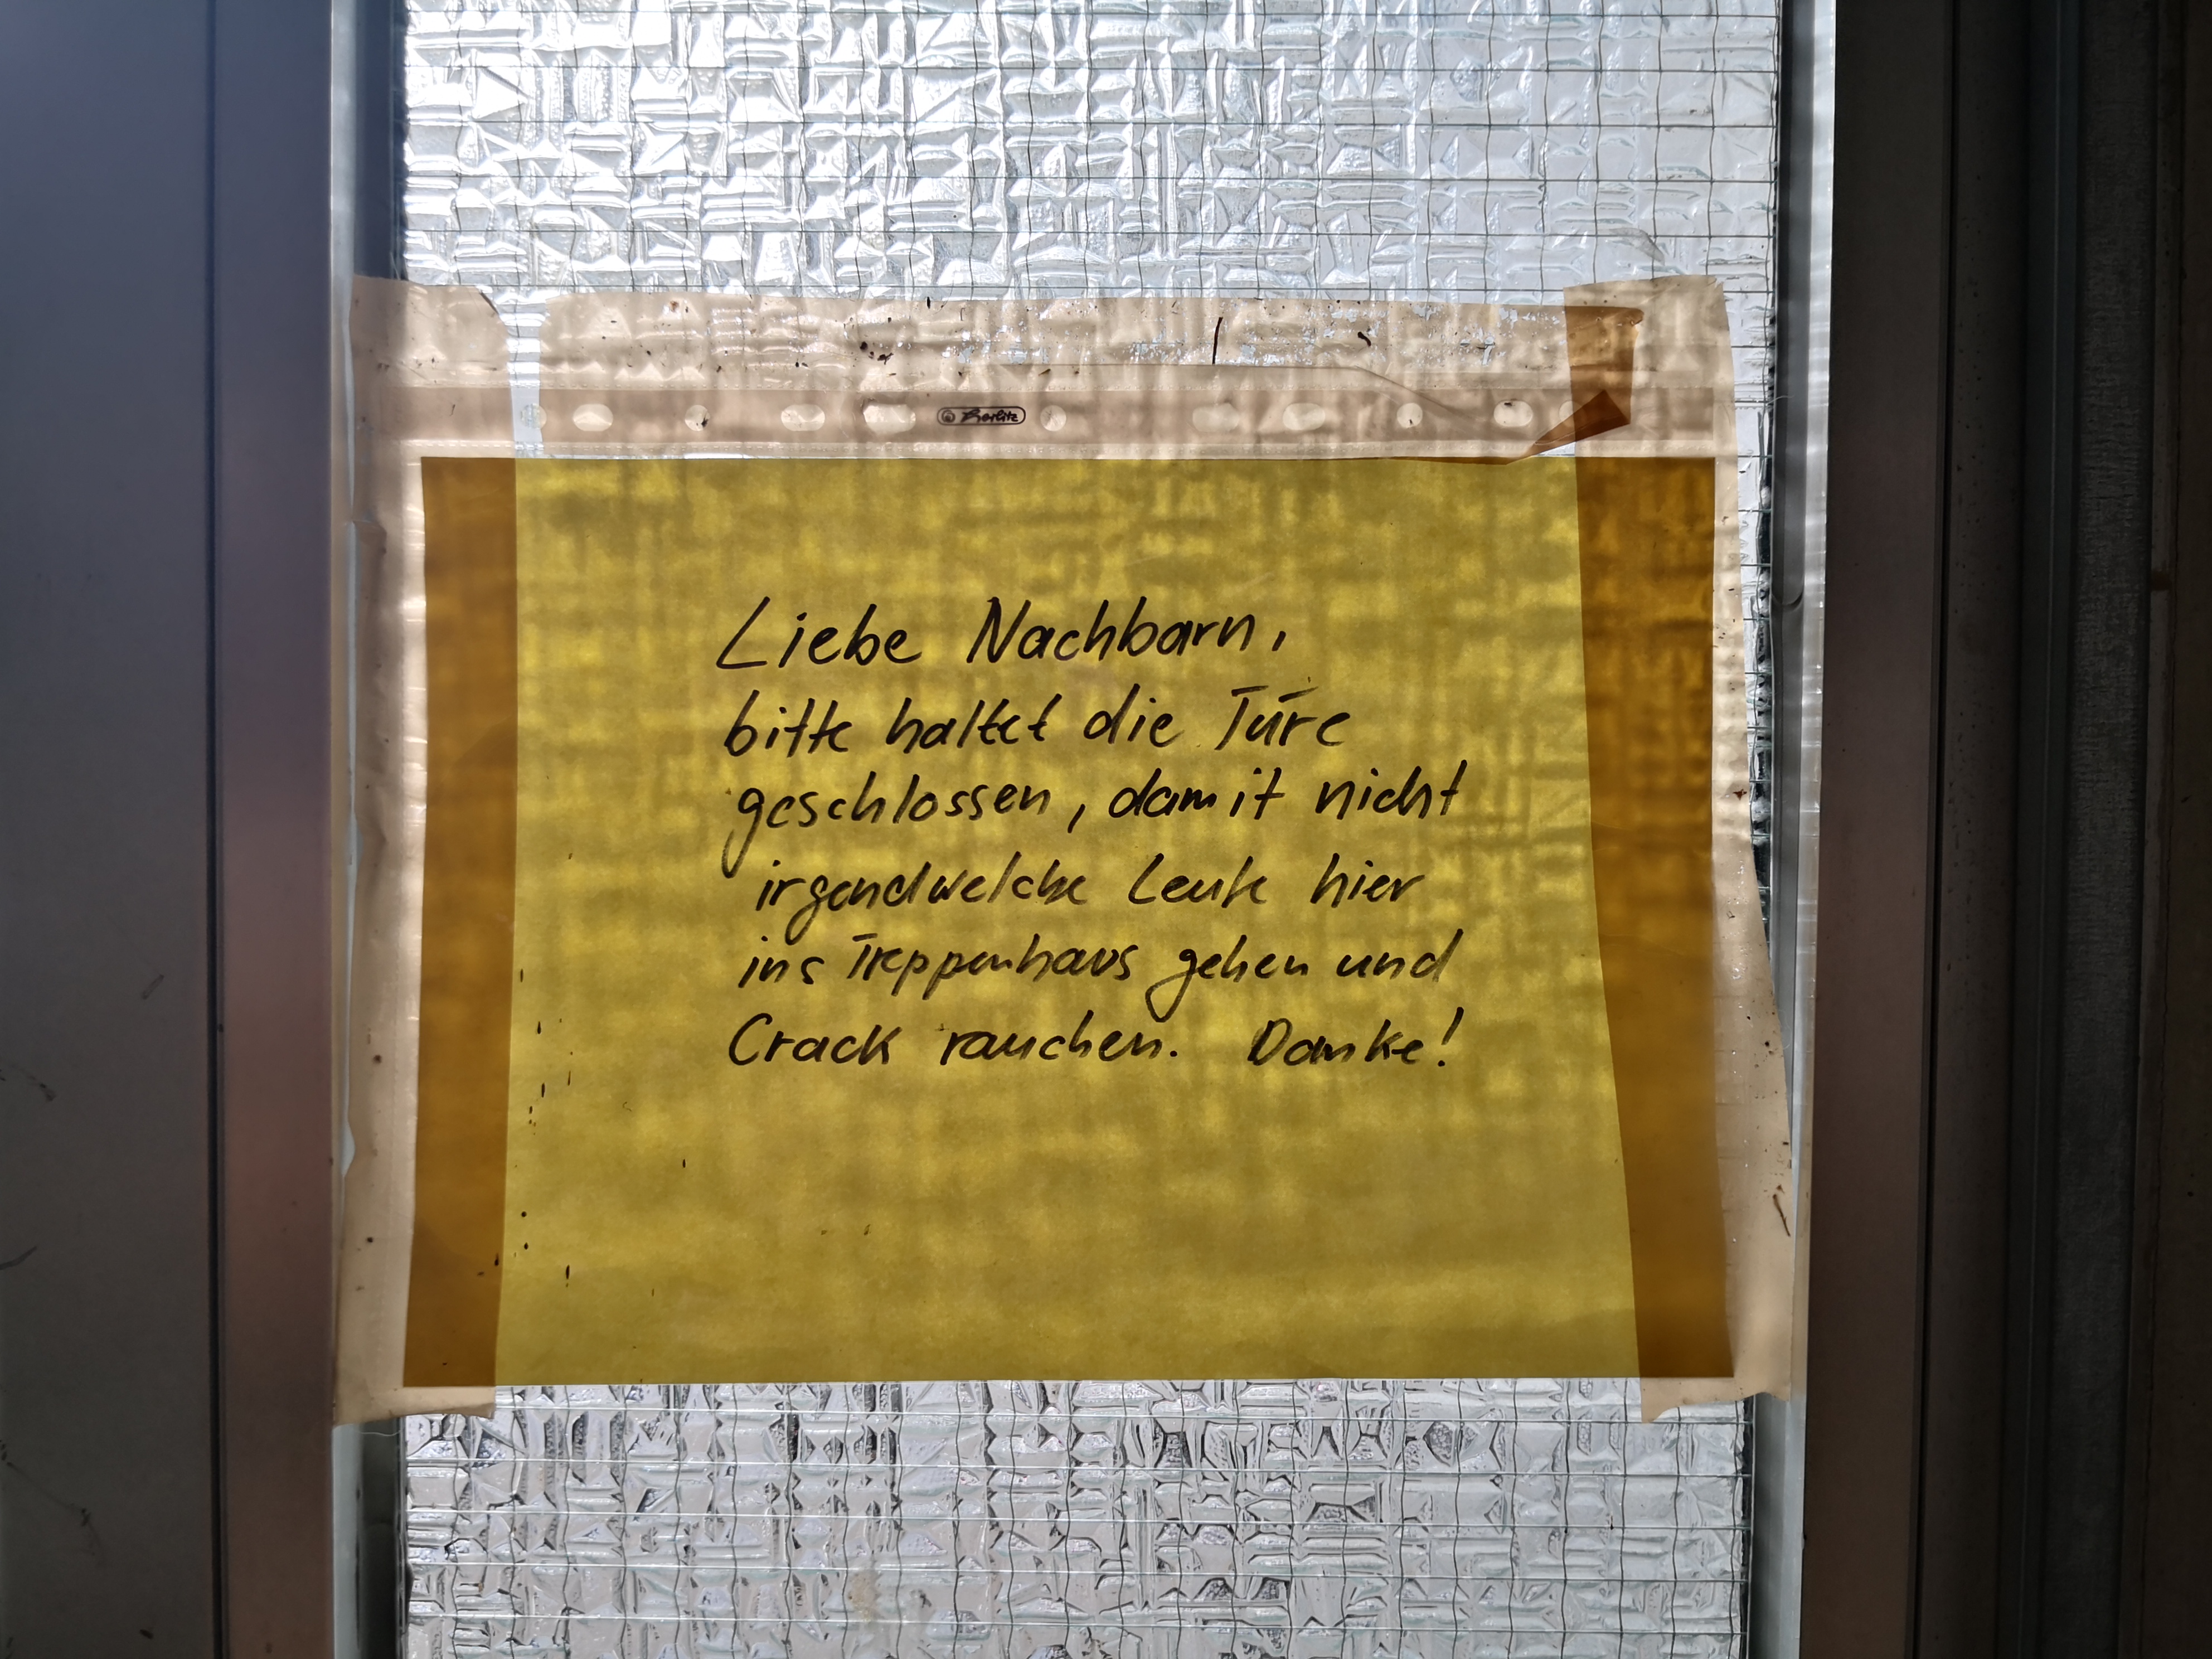 Herlitz
Liebe Nachbarn,
bitte haltet die Türe
geschlossen, damit nicht
irgendwelche Leute hier
ins Treppenhaus gehen und
Crack rauchen. Danke!